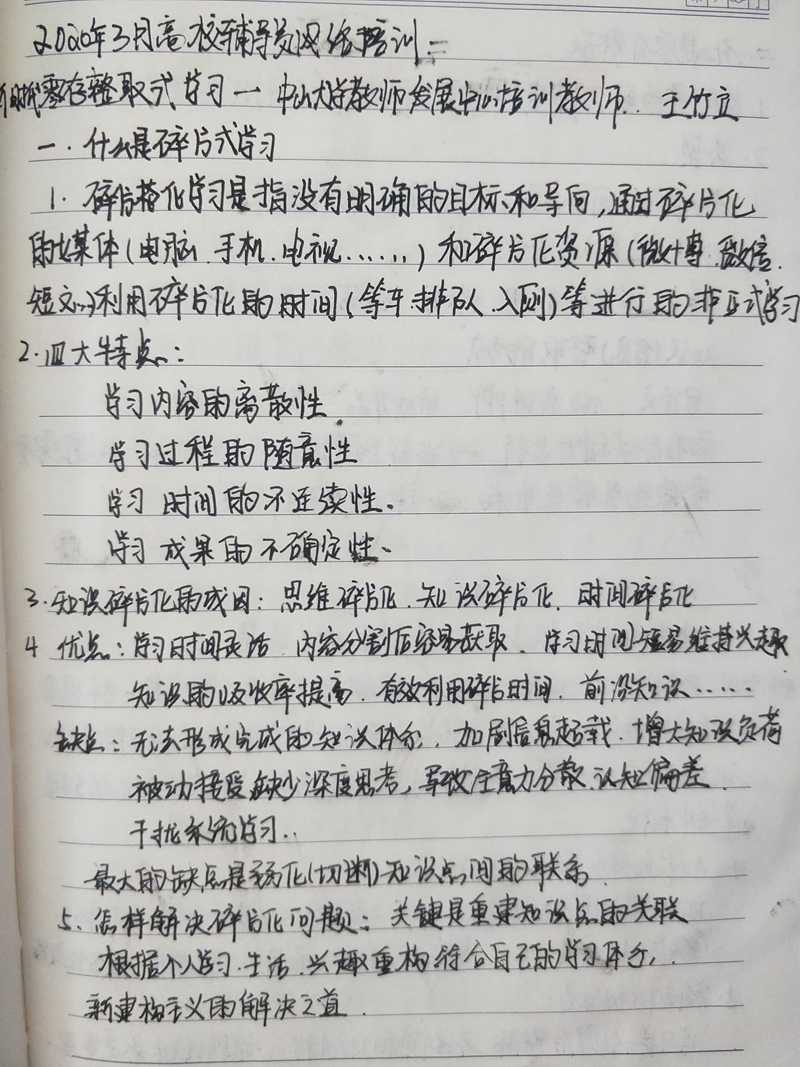 2020年3月高校辅导员网络培训二
时代零存整取式学习一 中山大学教师发展中心培训教师. 王竹立
一. 什么是碎片式学习
1. 碎片化学习是指没有明确的目标和导向,通过碎片化
的媒体(电脑.手机.电视......)和碎片化资源(微博.微信.
短文..)利用碎片化的时间(等车.排队.入厕)等进行的非正式学习
2. 四大特点:
学习内容的离散性.
学习过程的随意性
学习时间的不连续性.
学习成果的不确定性.
3. 知识碎片化的成因: 思维碎片化. 知识碎片化. 时间碎片化
4 优点: 学习时间灵活. 内容分割后容易获取. 学习时间短易维持兴趣
知识的吸收率提高. 有效利用碎片时间. 前沿知识......
缺点: 无法形成完成的知识体系. 加剧信息超载. 增大知识负荷
被动接受缺少深度思考, 导致注意力分散.认知偏差.
干扰系统学习..
最大的缺点是弱化(切断)知识点间的联系.
5. 怎样解决碎片化问题: 关键是重建知识点的关联
根据个人学习.生活.兴趣重构符合自己的学习体系.
新建构主义的解决之道.